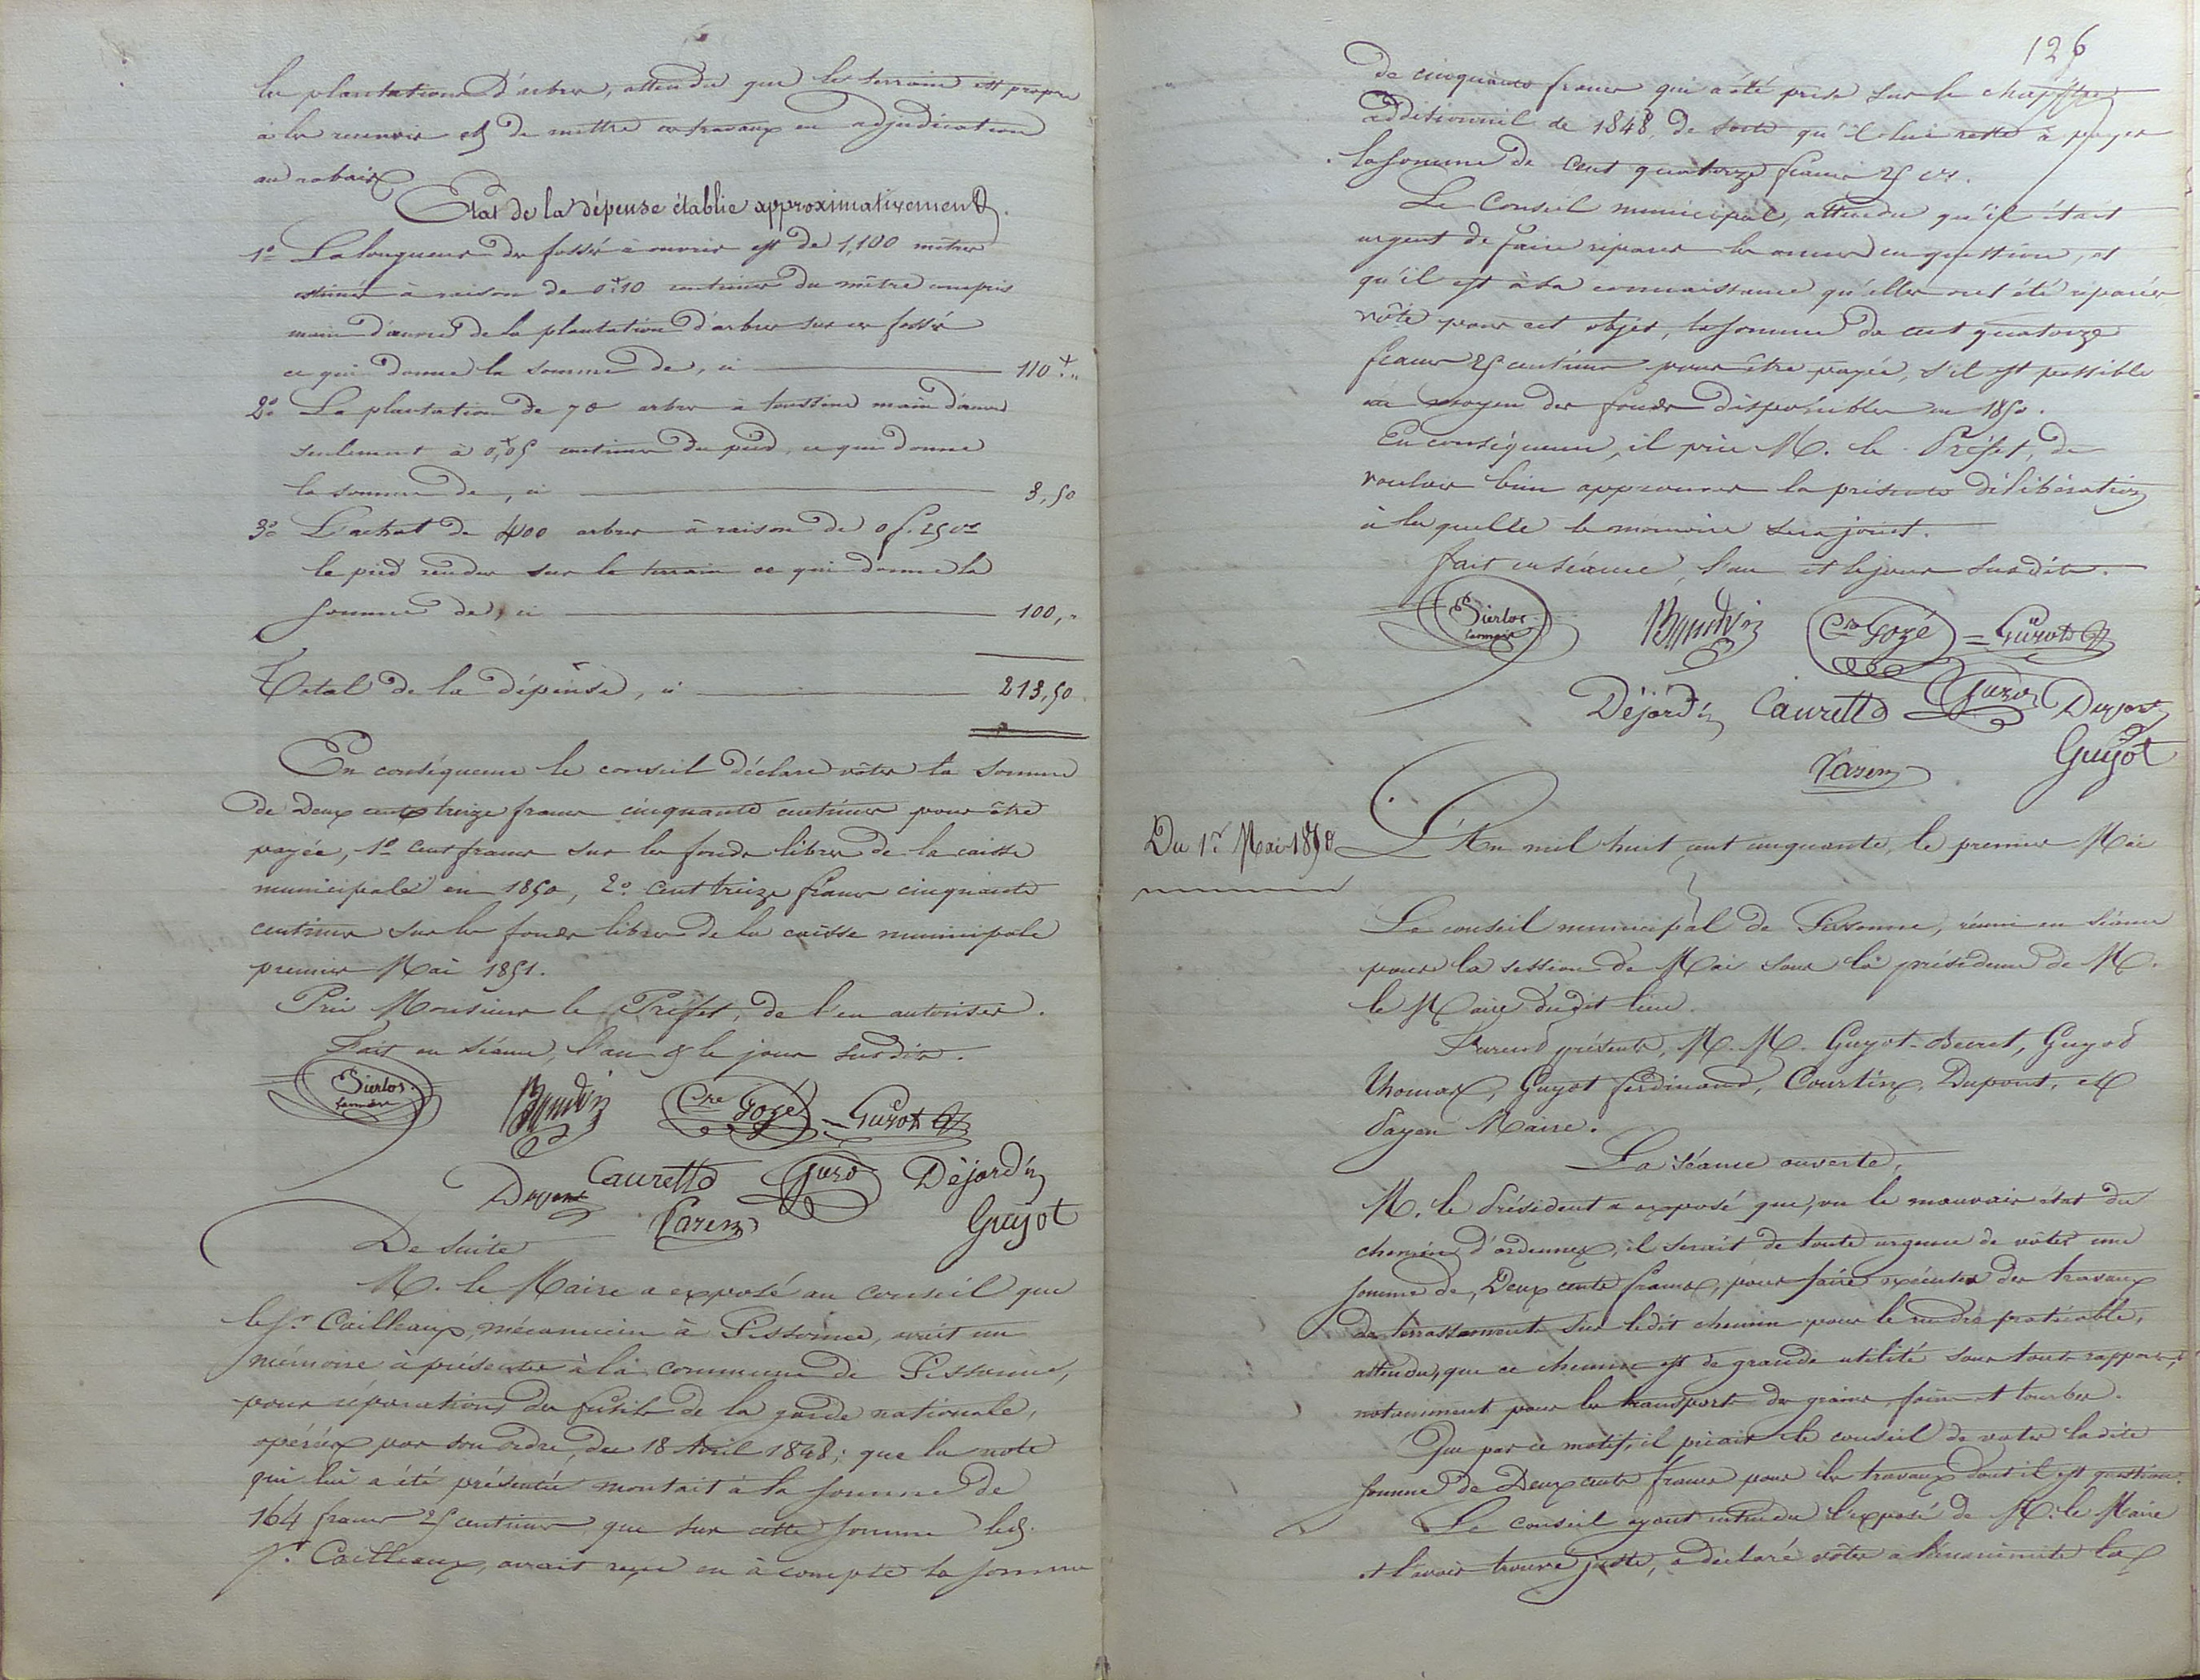 les plantations d'arbres, attendu que le terrain est propre
à les recevoir et de mettre ces travaux en adjudication
au rabais
Etat de la dépense établie approximativement.
1º La longueur des fossés à ouvrir est de 1,100 mètres
estimés à raison de 0f10 centimes du mètre compris
main d'œuvre de la plantation d'arbres sur ces fossés
ce qui donne la somme de, ci 110f „
2º La plantation de 70 arbres à main d'œuvre
seulement à 0f,05 centimes du pied, ce qui donne
la somme de, ci 3,50
3º L'achat de 400 arbres à raison de 0 f. 25 cs
le pied rendus sur le terrain ce qui donne la
somme de, ci 100, „
Total de la dépense, ci 213,50
En conséquence le conseil déclare vôter la somme
de Deux cent treize francs cinquante centimes pour être
payée, 1º Cent francs sur les fonds libres de la caisse
municipale en 1850, 2º Cent treize francs cinquante
centimes sur les fonds libres de la caisse municipale
premier Mai 1851.
Prie Monsieur le Préfet, de l'en autoriser.
Fait en séance, l'an & le jour susdits.
Baudoin Cre Gozé = Guyot
Caurette Guyot Déjardin
Dupont Guyot
De suite
M. le Maire a exposé au conseil que
le Sr. Cailleaux, mécanicien à Sissonne, avait un
mémoire à présenter à la commune de Sissonne,
pour réparations des fusils de la garde nationale,
opérées par son ordre, du 18 Avril 1848; que la note
qui lui a été présentée montait à la somme de
164 francs 25 centimes, que sur cette somme led.
Sr. Cailleaux, avait reçu en à compte la somme
126
de cinquante francs qui a été prise sur le chapître
additionnel de 1848, de sorte qu'il lui reste à payer
la somme de Cent quatorze francs 25 cs.
Le Conseil municipal, attendu qu'il était
urgent de faire réparer les armes en question, et
qu'il est à sa connaissance qu'elles ont été réparées
vôte pour cet objet, la somme de cent quatorze
francs 25 centimes pour être payée, s'il est possible
au moyen des fonds disponibles en 1850.
En conséquence, il prie M. le Préfet, de
vouloir bien approuver la présente délibération
à laquelle le mémoire sera joint.
fait en séance, l'an et le jour susdits.
Baudoin Cre Gozé = Guyot
Déjardin Caurette Guyot Dupont
Guyot
Du 1er Mai 1850 L'An mil huit cent cinquante, le premier Mai
Le conseil municipal de Sissonne, réuni en séance
pour la session de Mai sous la présidence de M.
le Maire dudit lieu.
Furent présents, M. M. Guyot-Becret, Guyot
Thomas, Guyot ferdinand, Courtin, Dupont, et
Payen Maire.
La séance ouverte,
M. le Président a exposé que, vu le mauvais état du
chemin d'ardennes, il serait de toute urgence de vôter une
somme de, Deux cents francs, pour faire exécuter des travaux
de terrassements sur ledit chemin pour le rendre praticable,
attendu, que ce chemin est de grande utilité sous tout rapport,
notamment pour les transports des grains, foin et tourbes.
Que par ce motif, il priait le conseil de voter ladite
somme de Deux cents francs pour les travaux dont il est question.
Le Conseil ayant entendu l'exposé de M. le Maire
et l'avoir trouvé juste, a déclaré vôter à l'unanimité la